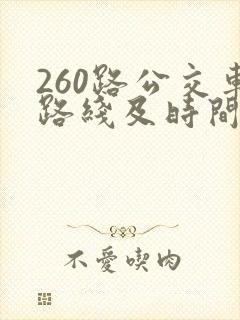 260路公交車
路綫及時間
不愛喫肉